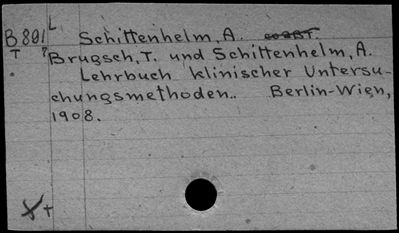 L
B 801 Schittenhelm, A.
T ? Brugsch, T. und Schittenhelm, A.
Lehrbuch klinischer Untersu-
chungsmethoden.. Berlin-Wien,
1908.
X +